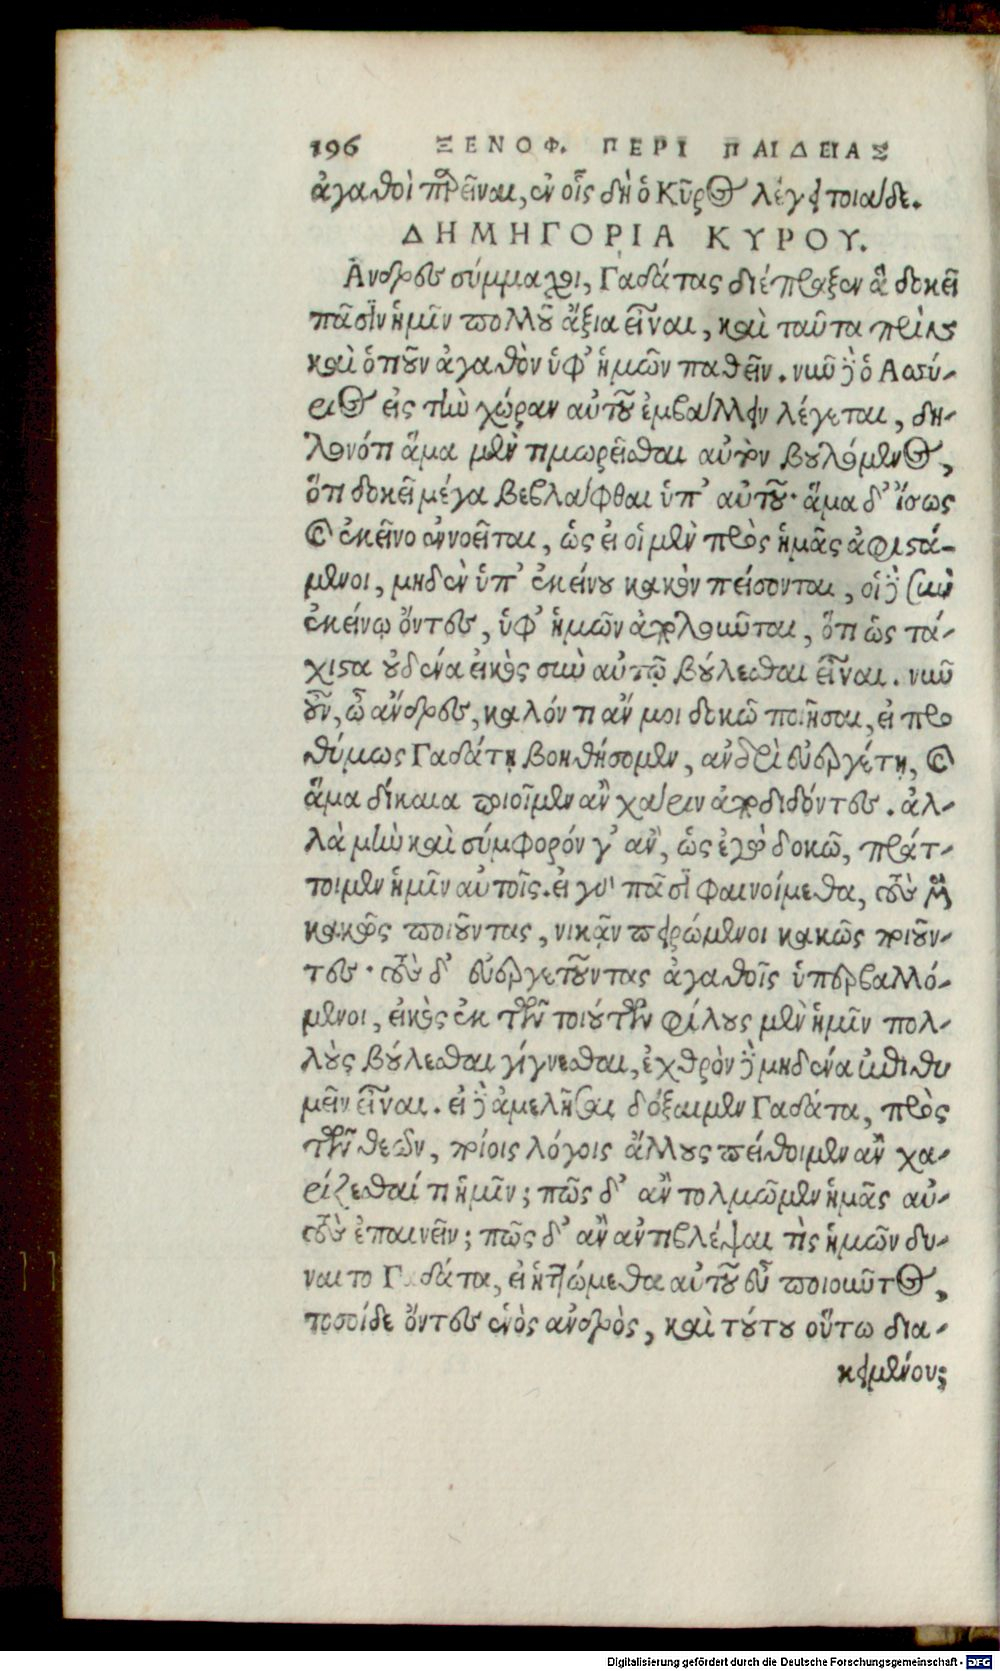 196 ΞΕΝΟΦ. ΠΕΡΙ ΠΑΙΔΕΙΑΣ
ἀγαθοὶ παρεῖναι, ἐν οἷς δὴ ὁ Κῦρος λέγει τοιάδε.
ΔΗΜΗΓΟΡΙΑ ΚΥΡΟΥ.
Ἄνδρες σύμμαχοι, Γαδάτας διέπραξεν ἃ δοκεῖ
πᾶσιν ἡμῖν πολλοῦ ἄξια εἶναι, καὶ ταῦτα πρὶν
καὶ ὁτιοῦν ἀγαθὸν ὑφ' ἡμῶν παθεῖν. νῦν δὲ ὁ Ἀσσύ-
ριος εἰς τὴν χώραν αὐτοῦ ἐμβάλλειν λέγεται, δη-
λονότι ἅμα μὲν τιμωρεῖσθαι αὐτὸν βουλόμενος,
ὅτι δοκεῖ μέγα βεβλάφθαι ὑπ' αὐτοῦ· ἅμα δ' ἴσως
καὶ ἐκεῖνο ἐννοεῖται, ὡς εἰ οἱ μὲν πρὸς ἡμᾶς ἀφιστά-
μενοι, μηδὲν ὑπ' ἐκείνου κακὸν πείσονται, οἱ δὲ σὺν
ἐκείνῳ ὄντες, ὑφ' ἡμῶν ἀπολοῦνται, ὅτι ὡς τά-
χιστα οὐδένα εἰκὸς σὺν αὐτῷ βούλεσθαι εἶναι. νῦν
οὖν, ὦ ἄνδρες, καλόν τι ἄν μοι δοκῶ ποιῆσαι, εἰ προ
θύμως Γαδάτῃ βοηθήσομεν, ἀνδρὶ εὐεργέτῃ, καὶ
ἅμα δίκαια ποιοῖμεν ἂν χάριν ἀποδιδόντες. ἀλ-
λὰ μὴν καὶ σύμφορόν γ' ἂν, ὡς ἐμοὶ δοκῶ, πράτ-
τοιμεν ἡμῖν αὐτοῖς. εἰ γὰρ πᾶσι φαινοίμεθα, τοὺς μὲν
κακῶς ποιοῦντας, νικᾷν πειρώμενοι κακῶς ποιοῦν-
τες· τοὺς δ' εὐεργετοῦντας ἀγαθοῖς ὑπερβαλλό-
μενοι, εἰκὸς ἐκ τῶν τοιούτων φίλους μὲν ἡμῖν πολ-
λοὺς βούλεσθαι γίγνεσθαι, ἐχθρὸν δὲ μηδένα ἐπιθυ
μεῖν εἶναι. εἰ δὲ ἀμελῆσαι δόξαιμεν Γαδάτα, πρὸς
τῶν θεῶν, ποίοις λόγοις ἄλλους πείθοιμεν ἂν χα-
ρίζεσθαί τι ἡμῖν; πῶς δ' ἂν τολμῶμεν ἡμᾶς αὐ-
τοὺς ἐπαινεῖν; πῶς δ' ἂν ἀντιβλέψαι τὶς ἡμῶν δύ-
ναιτο Γαδάτα, εἰ ἡττώμεθα αὐτοῦ εὖ ποιοῦντος,
τοσοίδε ὄντες ἑνὸς ἀνδρὸς, καὶ τούτου οὕτω δια-
κειμένου;
Digitalisierung gefördert durch die Deutsche Forschungsgemeinschaft - DFG